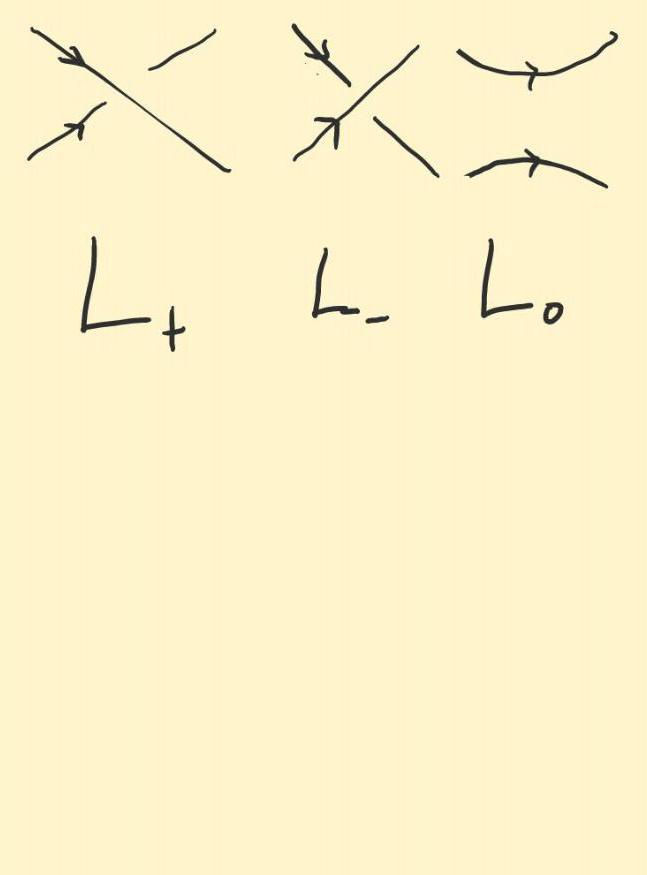 L₊ L₋ L₀